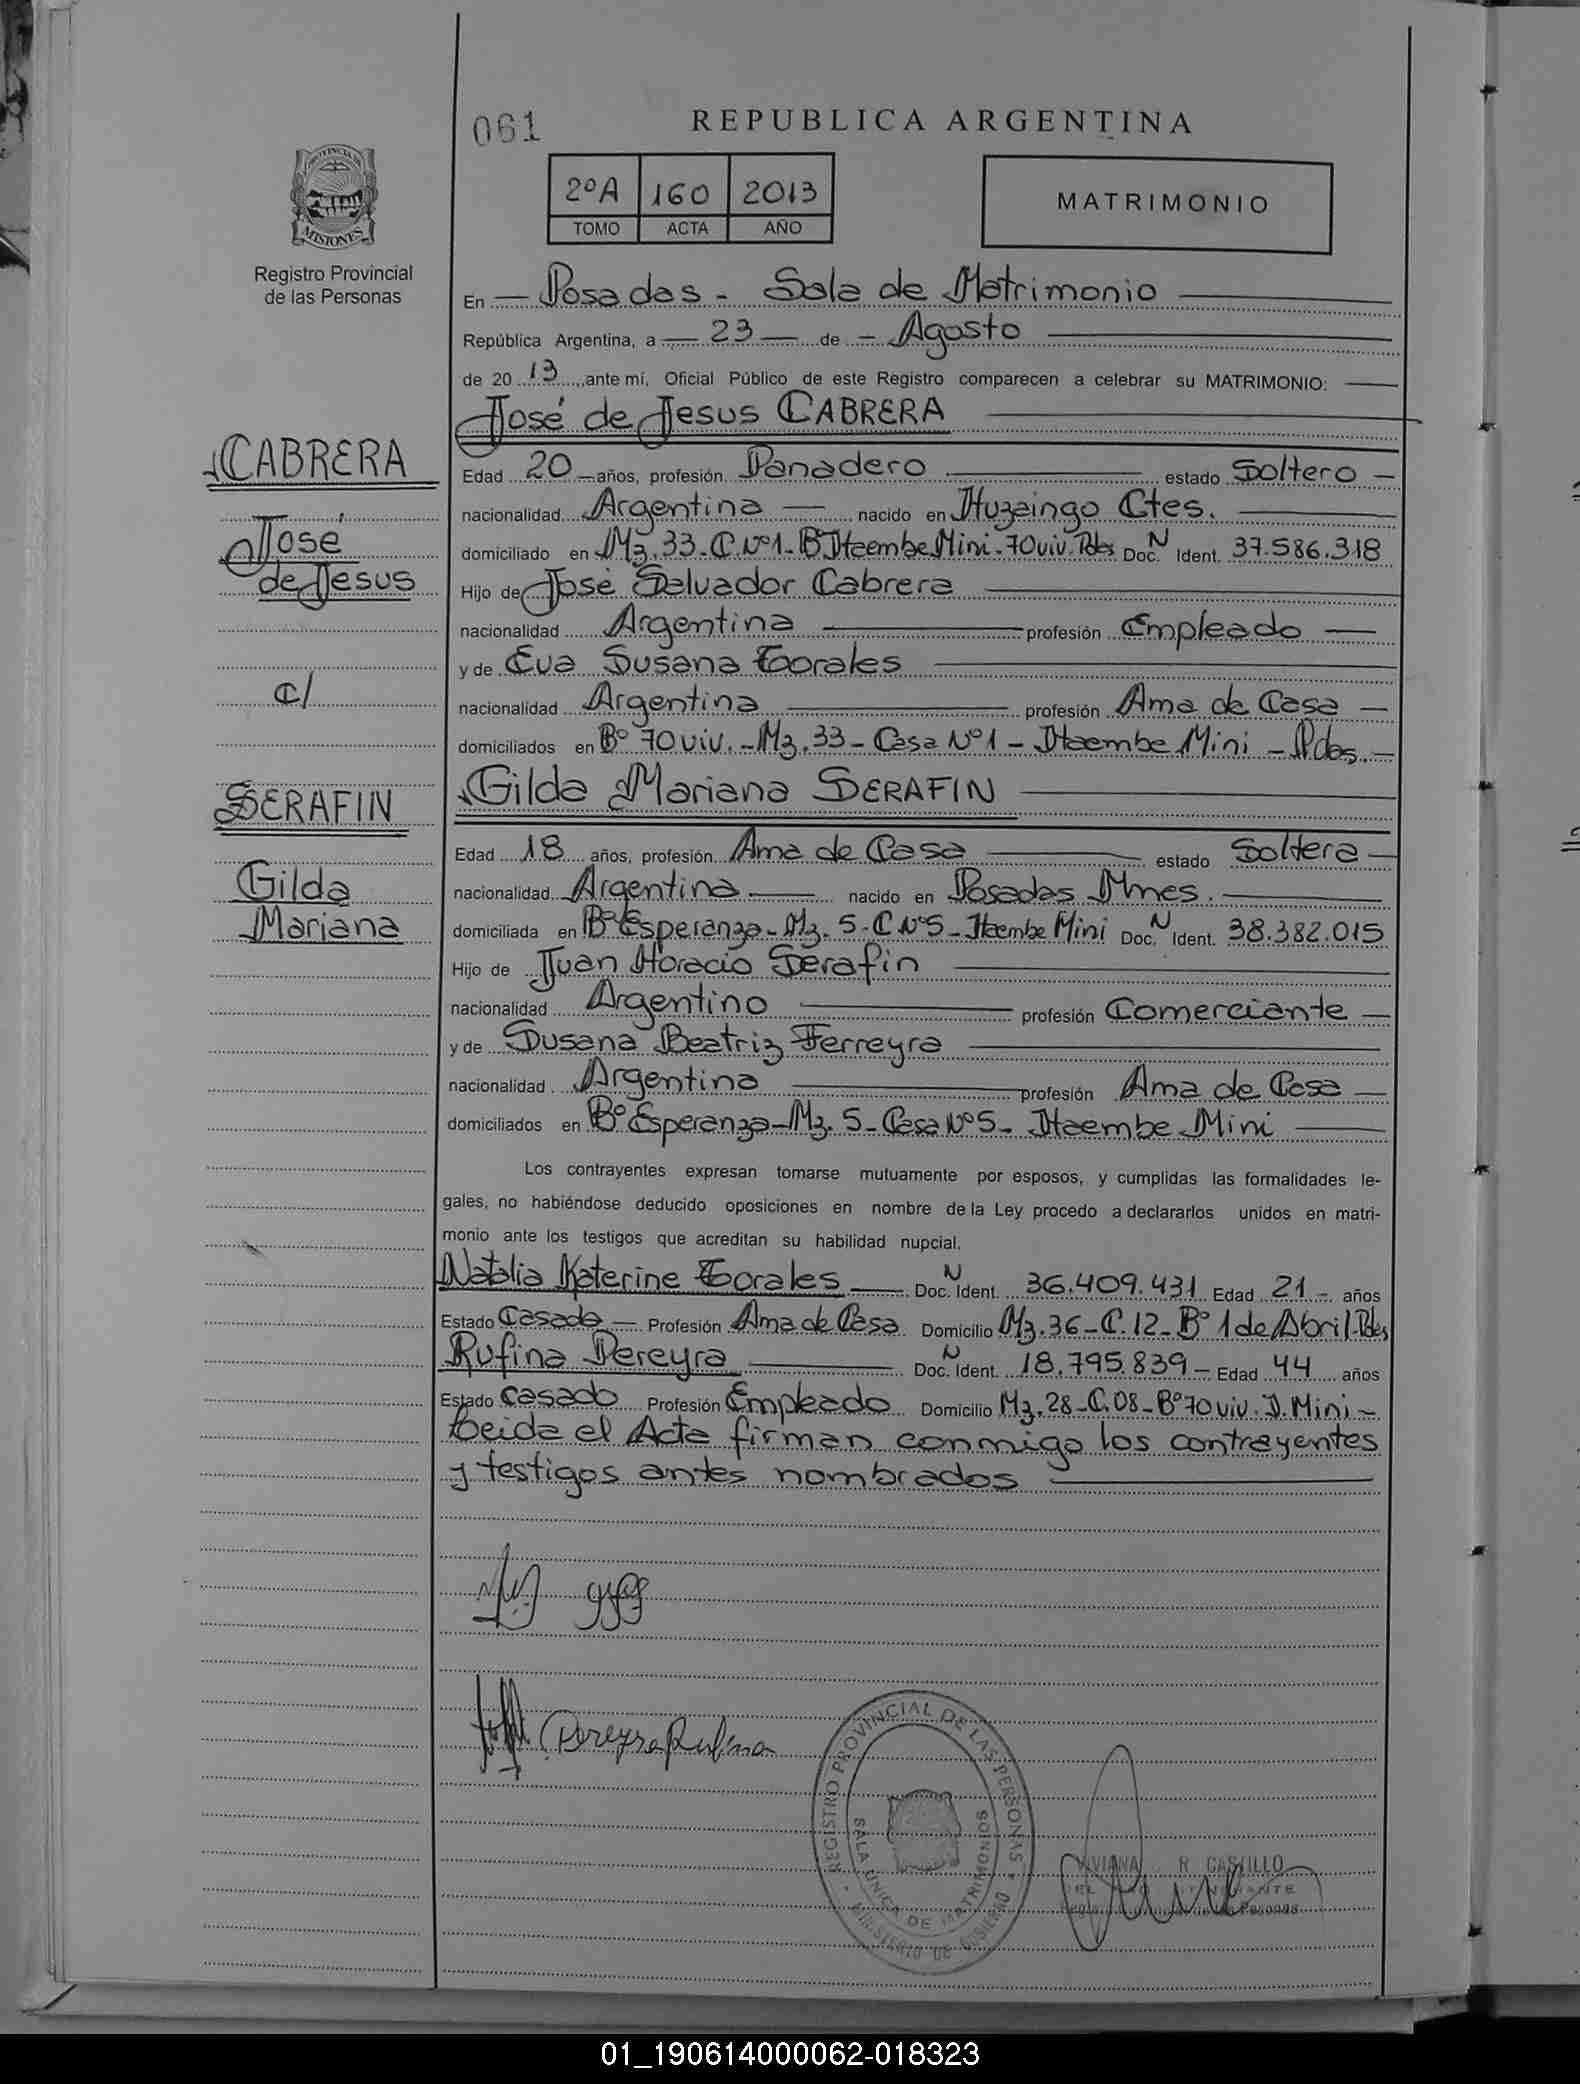 061
REPUBLICA ARGENTINA
PROVINCIA DE
MISIONES
Registro Provincial
de las Personas
2ºA 160 2013
TOMO ACTA AÑO
MATRIMONIO
En — Posadas - Sala de Matrimonio
República Argentina, a — 23 — de - Agosto
de 20 13 ,ante mí, Oficial Público de este Registro comparecen a celebrar su MATRIMONIO:
José de Jesus CABRERA
CABRERA
José
de Jesus
c/
SERAFIN
Gilda
Mariana
Edad 20 — años, profesión Panadero estado Soltero —
nacionalidad Argentina — nacido en Ituzaingo Ctes.
domiciliado en Mz. 33 - C. Nº1 - Bº Itaembe Mini - 70 viv. Pdas Doc. N Ident. 37.586.318
Hijo de José Salvador Cabrera
nacionalidad Argentina profesión Empleado —
y de Eva Susana Torales
nacionalidad Argentina profesión Ama de Casa —
domiciliados en Bº 70 viv. - Mz. 33 - Casa Nº1 - Itaembe Mini - Pdas. -
Gilda Mariana SERAFIN
Edad 18 años, profesión Ama de Casa estado Soltera —
nacionalidad Argentina — nacido en Posadas Mnes.
domiciliada en Bº Esperanza - Mz. 5 - C Nº5 - Itaembe Mini Doc. N Ident. 38.382.015
Hijo de Juan Horacio Serafin
nacionalidad Argentino profesión Comerciante —
y de Susana Beatriz Ferreyra
nacionalidad Argentina profesión Ama de Casa —
domiciliados en Bº Esperanza - Mz. 5 - Casa Nº5 - Itaembe Mini
Los contrayentes expresan tomarse mutuamente por esposos, y cumplidas las formalidades le-
gales, no habiéndose deducido oposiciones en nombre de la Ley procedo a declararlos unidos en matri-
monio ante los testigos que acreditan su habilidad nupcial.
Natalia Katerine Torales — Doc. N Ident. 36.409.431 Edad 21 - años
Estado Casada — Profesión Ama de Casa Domicilio Mz. 36 - C. 12 - Bº 1 de Abril - Pdas
Rufina Pereyra Doc. N Ident. 18.795.839 - Edad 44 años
Estado Casado Profesión Empleado Domicilio Mz. 28 - C. 08 - Bº 70 viv. I. Mini -
Leida el Acta firman conmigo los contrayentes
y testigos antes nombrados
Pereyra Rufina
REGISTRO PROVINCIAL DE LAS PERSONAS
SALA UNICA DE MATRIMONIOS
MINISTERIO DE GOBIERNO
VIVIANA R CASTILLO
01_190614000062-018323